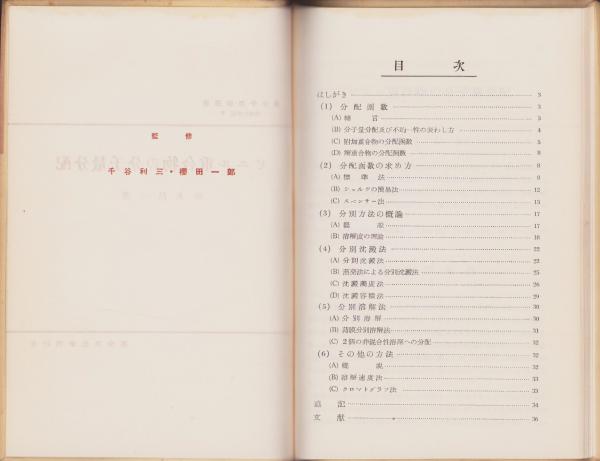 監修
千谷利三・櫻田一郎
目次
はしがき 3
(1) 分配函数 3
(A) 緒言 3
(B) 分子量分配及び不均一性の表わし方 4
(C) 附加重合物の分配函数 5
(D) 縮重合物の分配函数 8
(2) 分配函数の求め方 9
(A) 標準法 9
(B) シュルツの簡易法 12
(C) スペンサー法 13
(3) 分別方法の概論 17
(A) 総説 17
(B) 溶解度の理論 18
(4) 分別沈澱法 22
(A) 分別沈澱法 22
(B) 蒸発法による分別沈澱法 25
(C) 沈澱濁度法 26
(D) 沈澱容積法 29
(5) 分別溶解法 30
(A) 分別溶解 30
(B) 薄膜分別溶解法 31
(C) 2個の非混合性溶媒への分配 32
(6) その他の方法 32
(A) 概説 32
(B) 溶解速度法 33
(C) クロマトグラフ法 33
追記 34
文献 36